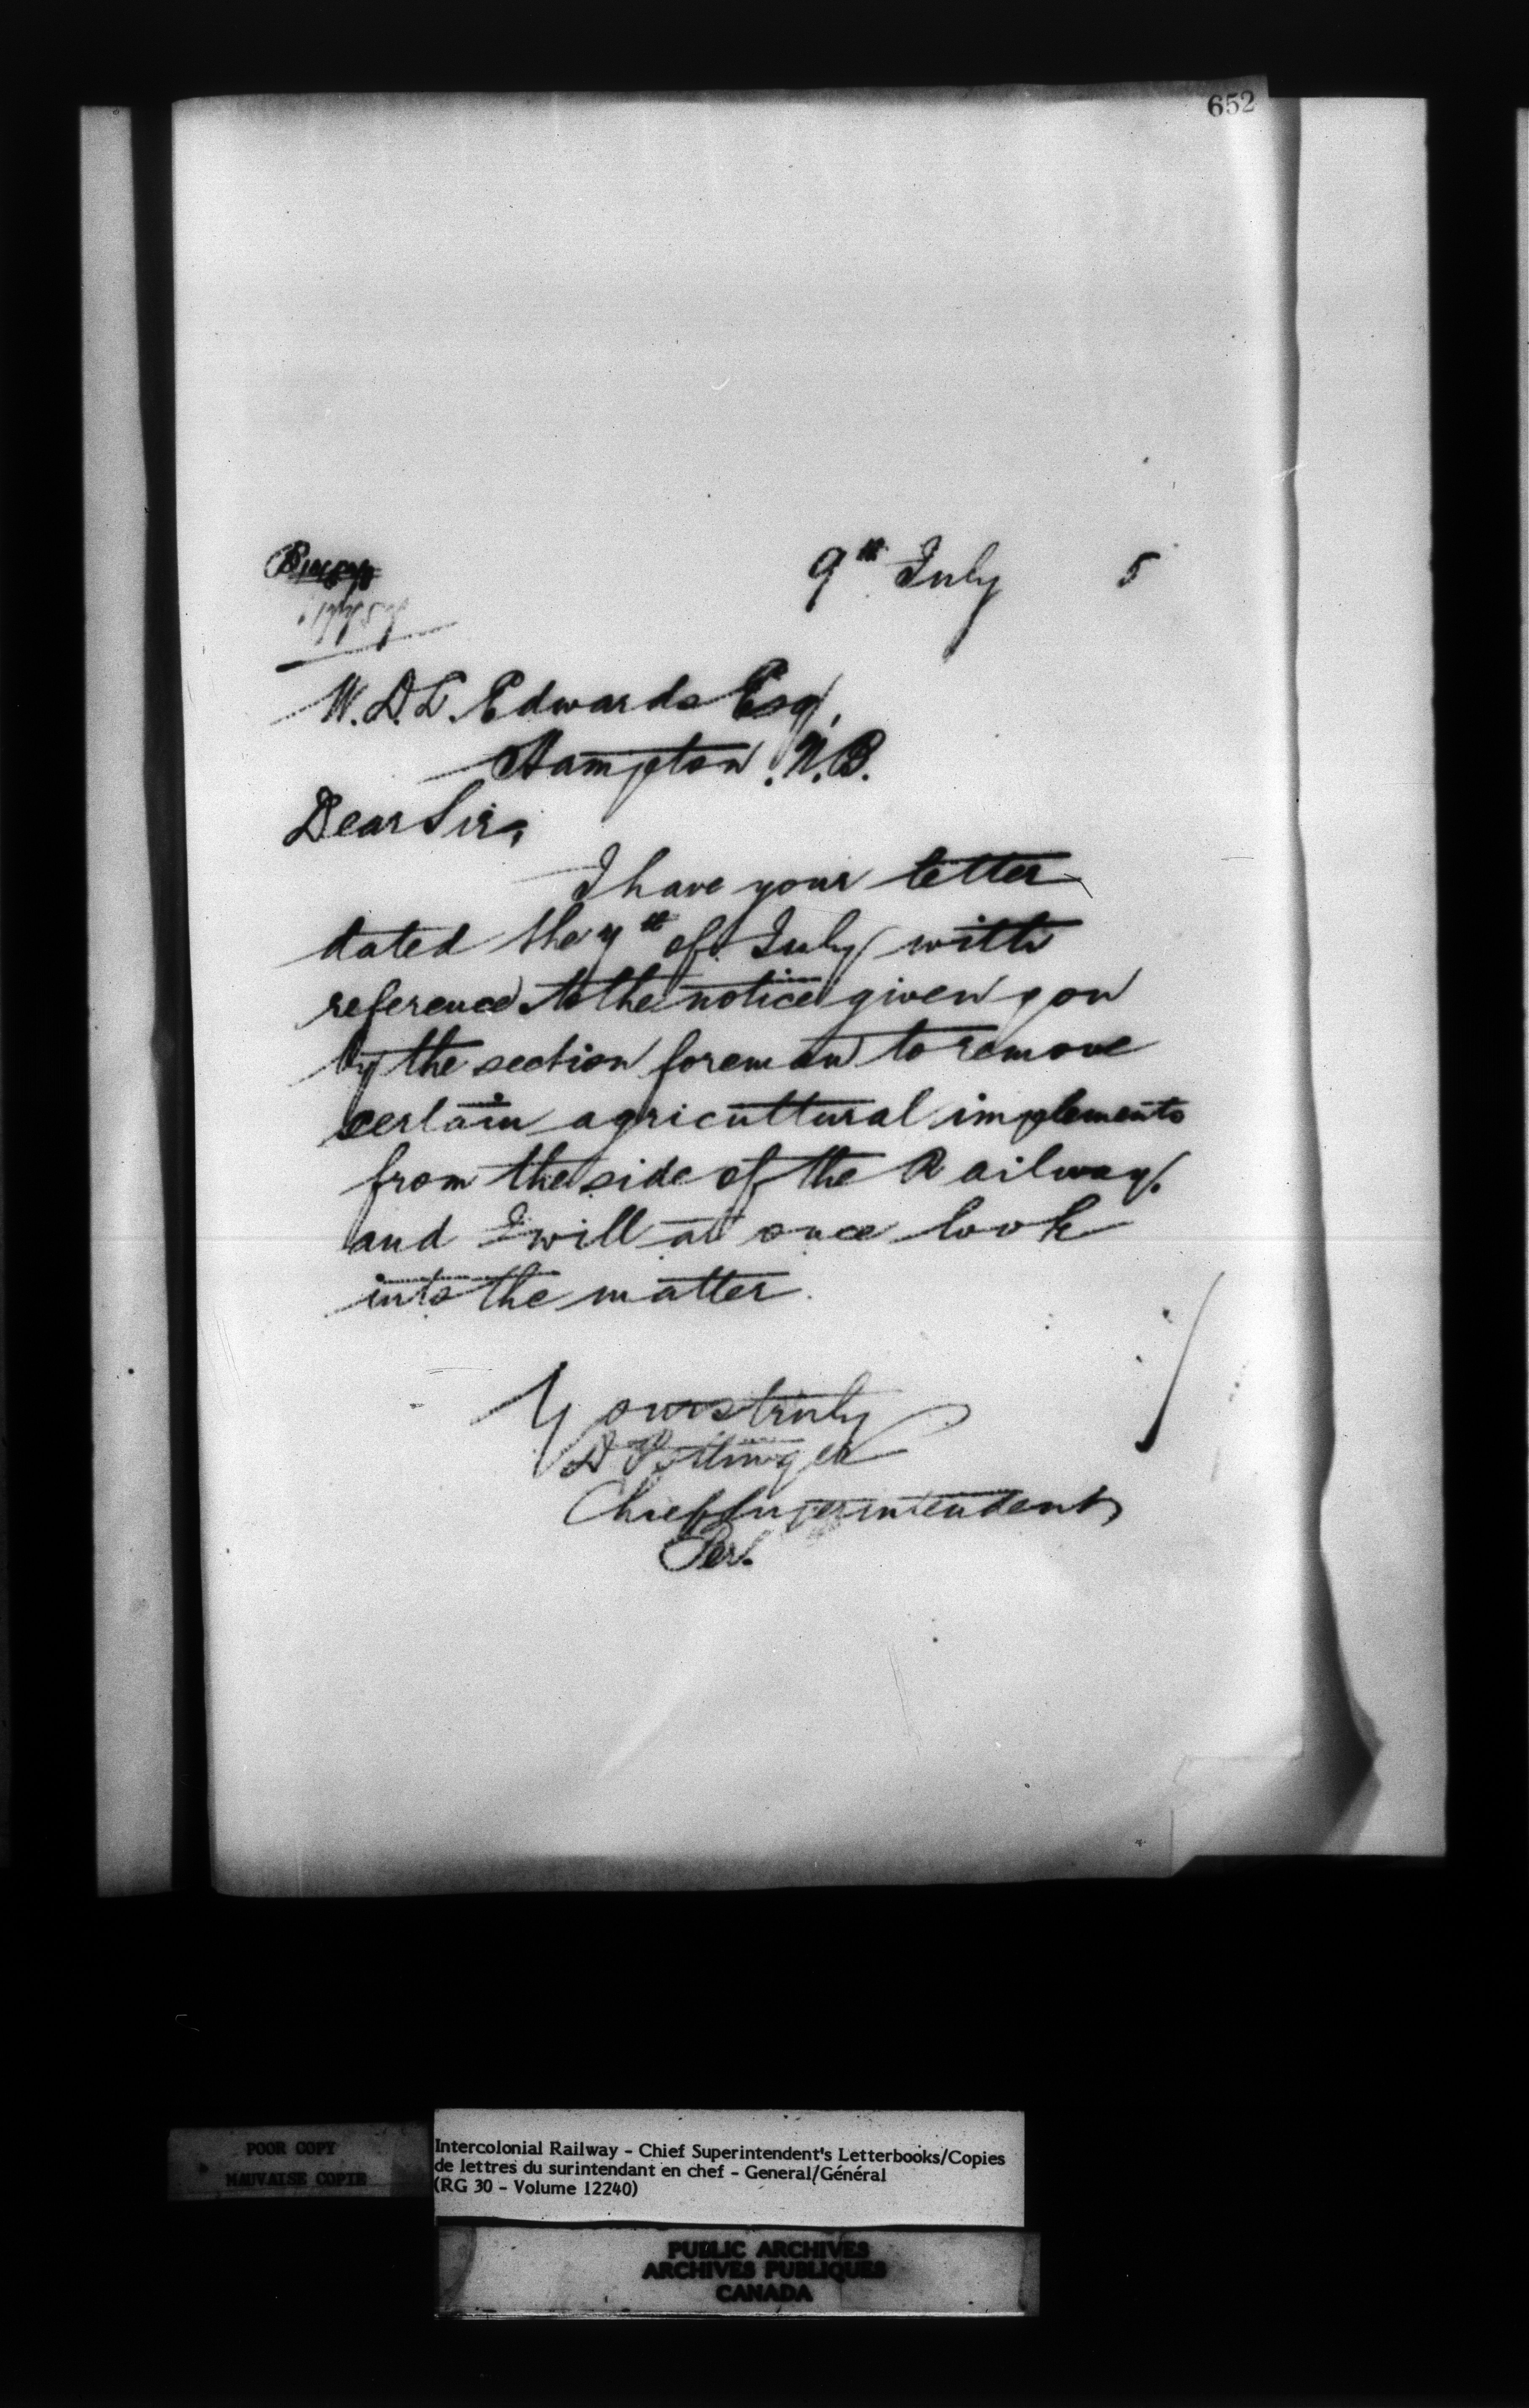 652
9th July 5
W. D. L. Edwards Esq,
Hampton. N.B.
Dear Sir,
I have your letter
dated the 7th of July with
reference to the notice given you
by the section foreman to remove
certain agricultural implements
from the side of the Railway.
and I will at once look
into the matter.
Yours truly
D Pottinger
Chief Superintendent
Per.
POOR COPY
MAUVAISE COPIE
Intercolonial Railway - Chief Superintendent's Letterbooks/Copies
de lettres du surintendant en chef - General/Général
(RG 30 - Volume 12240)
PUBLIC ARCHIVES
ARCHIVES PUBLIQUES
CANADA